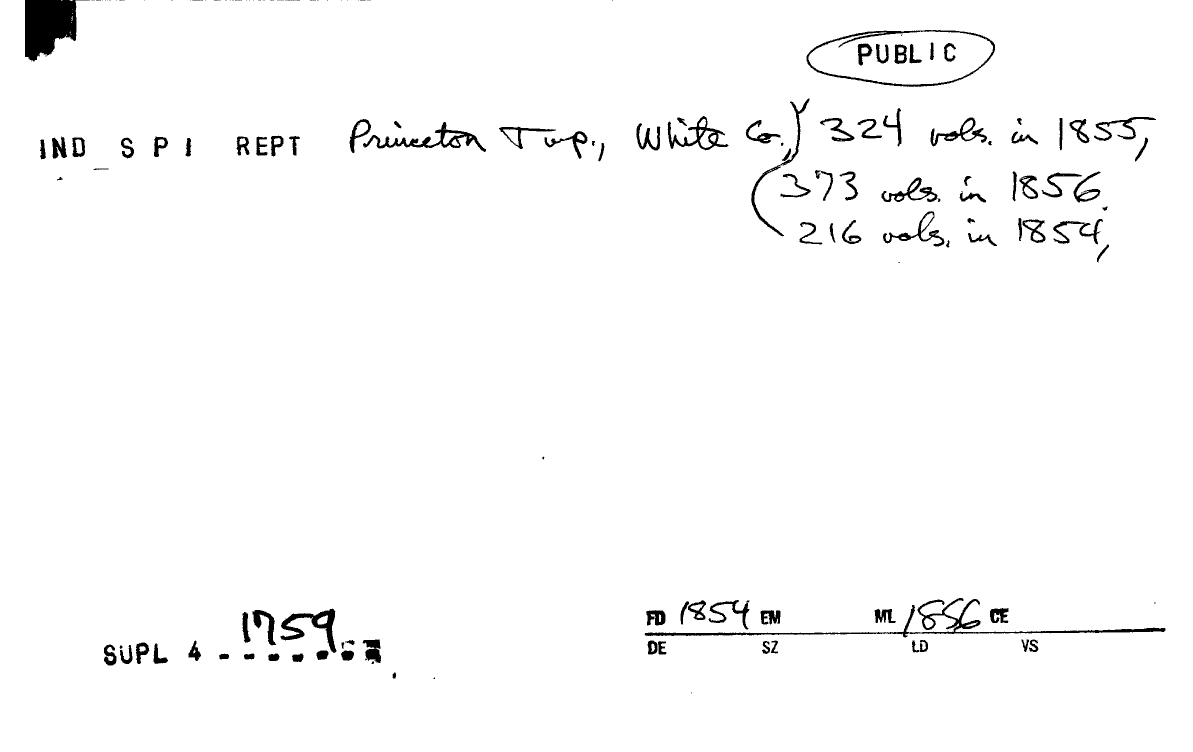 PUBLIC
IND S P I REPT Princeton Twp., White Co., 324 vols. in 1855,
373 vols. in 1856.
216 vols. in 1854,
1759
SUPL 4
FD 1854 EM ML 1856 CE
DE SZ LD VS